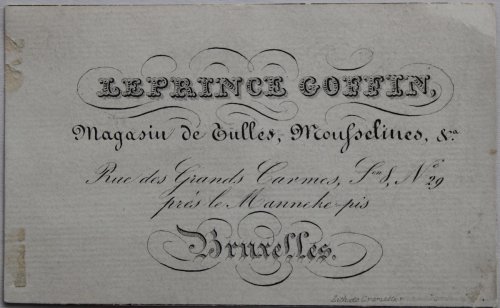 LEPRINCE GOFFIN,
Magasin de Tulles, Mousselines, &ca
Rue des Grands Carmes, Son 8, No 29
près le Manneke-pis
Bruxelles.
Lith. de